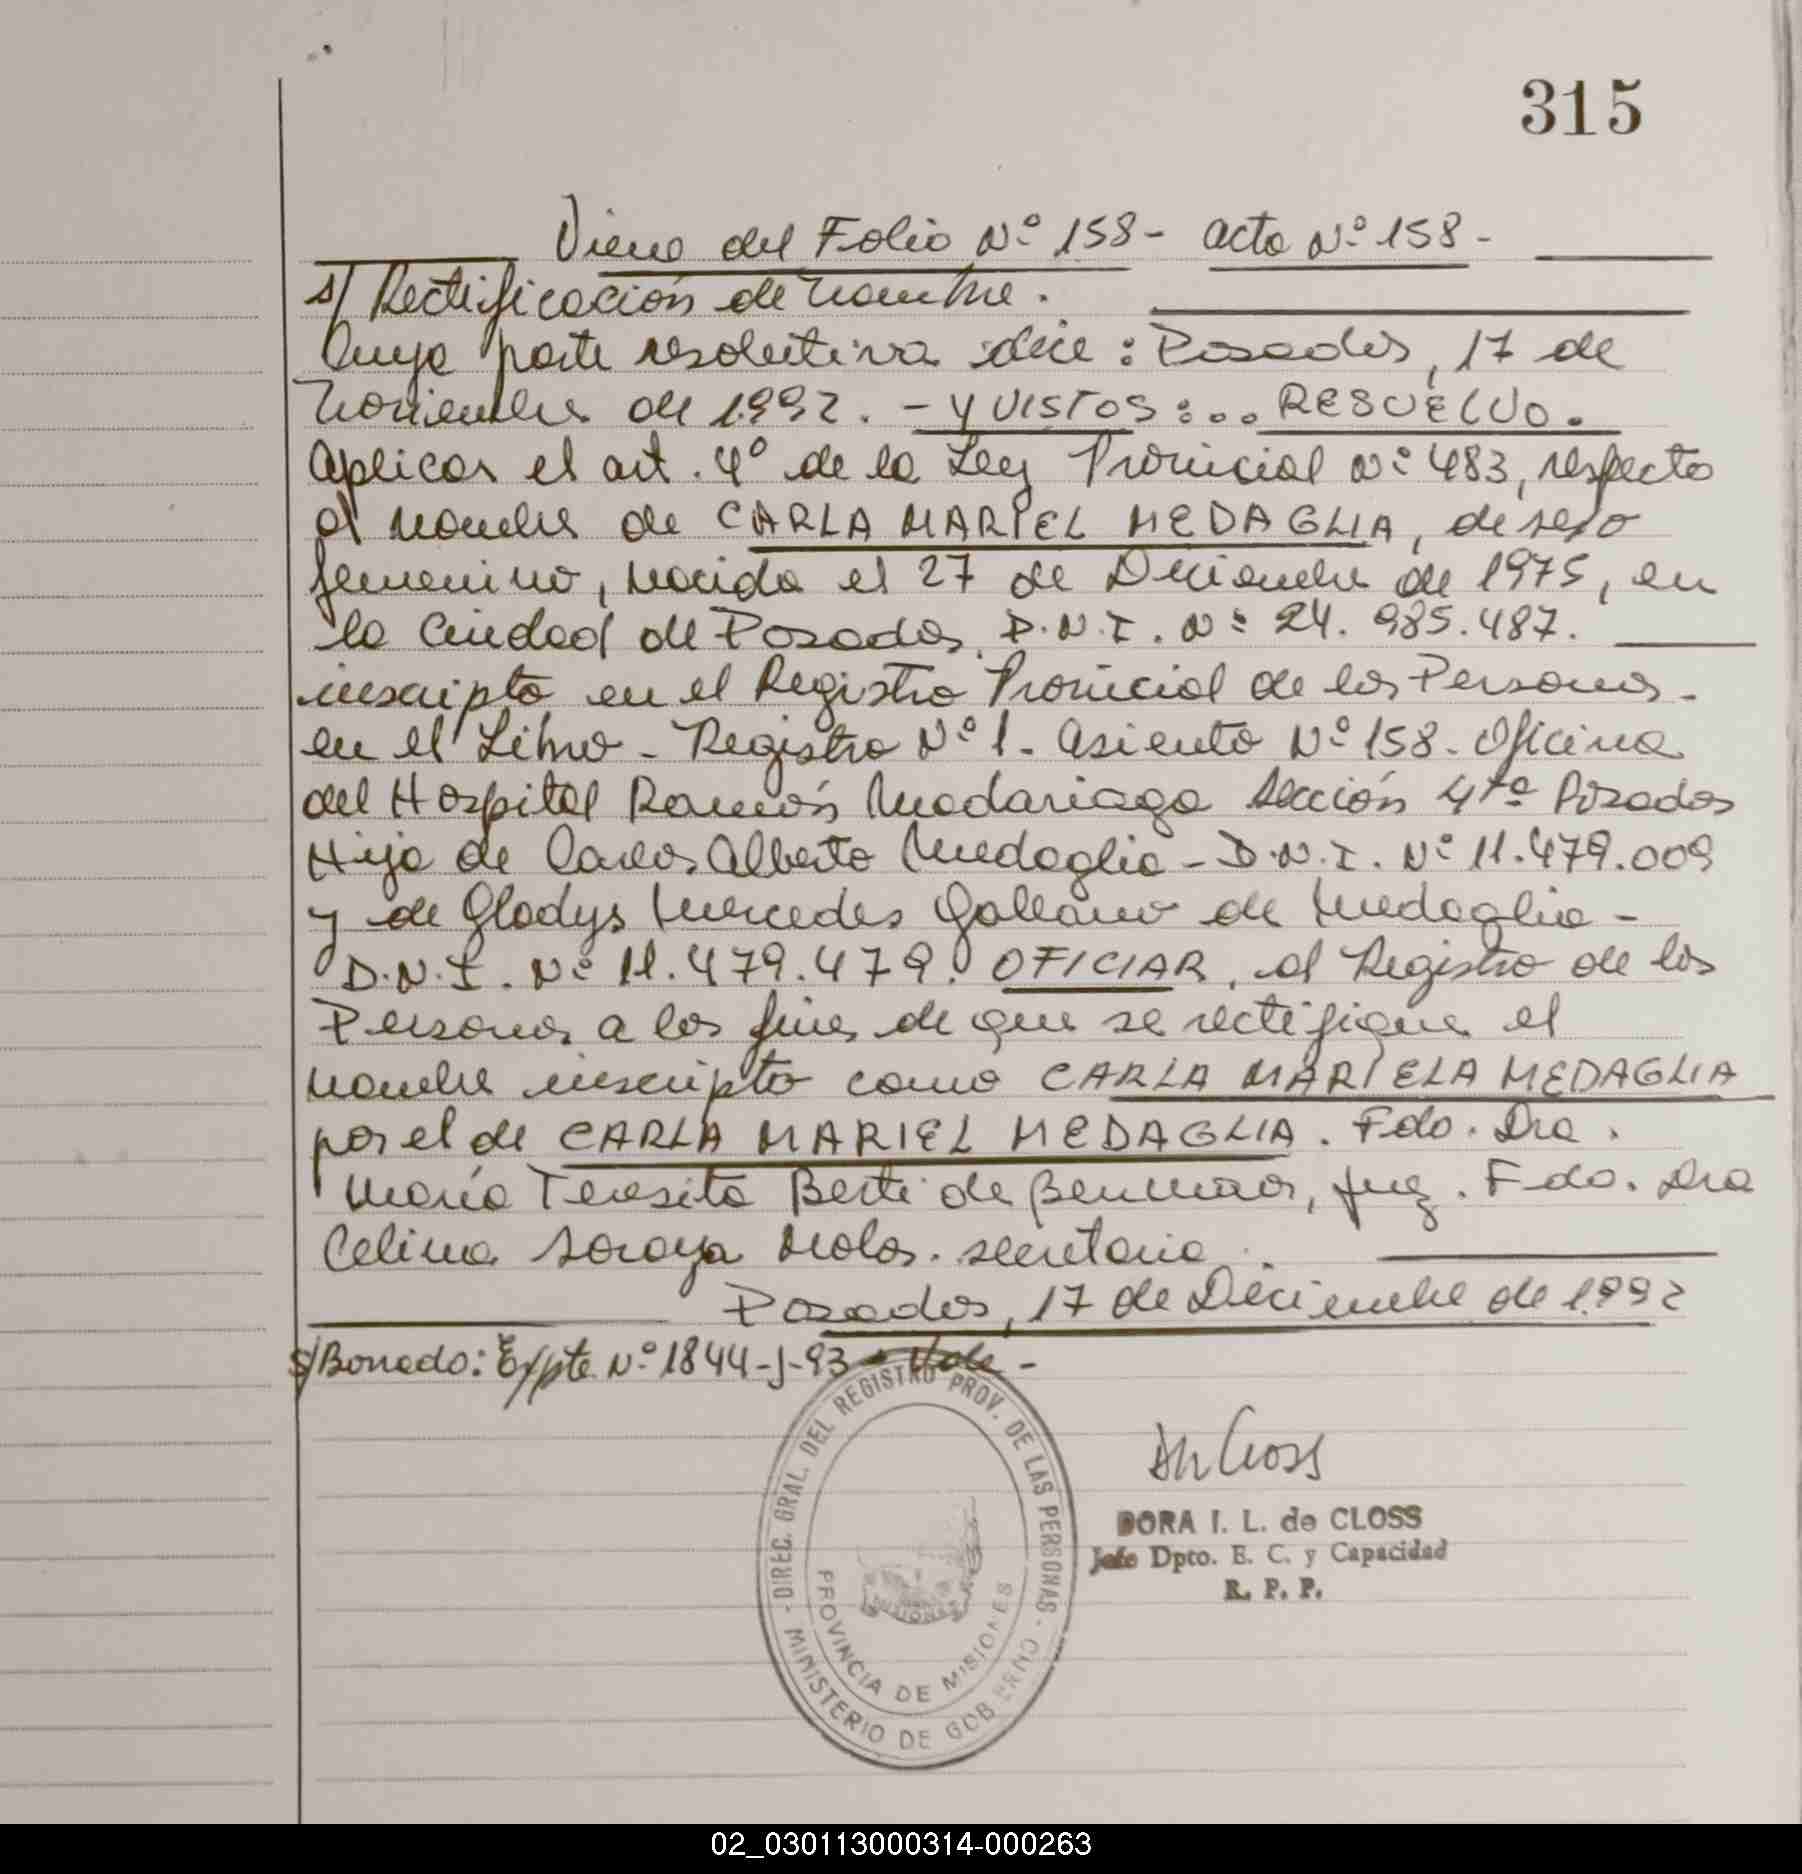 315
Viene del Folio Nº 158 - acta Nº 158 -
s/ Rectificación de nombre.
Cuya parte resolutiva dice: Posadas, 17 de
Noviembre de 1.992. - Y VISTOS:... RESUELVO.
Aplicar el art. 4º de la Ley Provincial Nº 483, respecto
al nombre de CARLA MARIEL MEDAGLIA, de sexo
femenino, nacida el 27 de Diciembre de 1975, en
la Ciudad de Posadas, D.N.I. Nº 24.985.487.
inscripto en el Registro Provincial de las Personas -
en el Libro - Registro Nº 1 - Asiento Nº 158 - Oficina
del Hospital Ramón Madariaga Sección 4ta Posadas
Hija de Carlos Alberto Medaglia - D.N.I. Nº 11.479.009
y de Gladys Mercedes Galeano de Medaglia -
D.N.I. Nº 11.479.479. OFICIAR, al Registro de las
Personas a los fines de que se rectifique el
nombre inscripto como CARLA MARIELA MEDAGLIA
por el de CARLA MARIEL MEDAGLIA. Fdo. Dra.
María Teresita Berti de , Juez. Fdo. Dra
Celina Soraya . secretaria.
Posadas, 17 de Diciembre de 1.992
s/Borrado: Expte. Nº 1844-J-93 - Vale -
DIREC. GRAL. DEL REGISTRO PROV. DE LAS PERSONAS -
MINISTERIO DE GOBIERNO
PROVINCIA DE MISIONES
MISIONES
DORA I. L. de CLOSS
Jefe Dpto. E. C. y Capacidad
R. P. P.
02_030113000314-000263